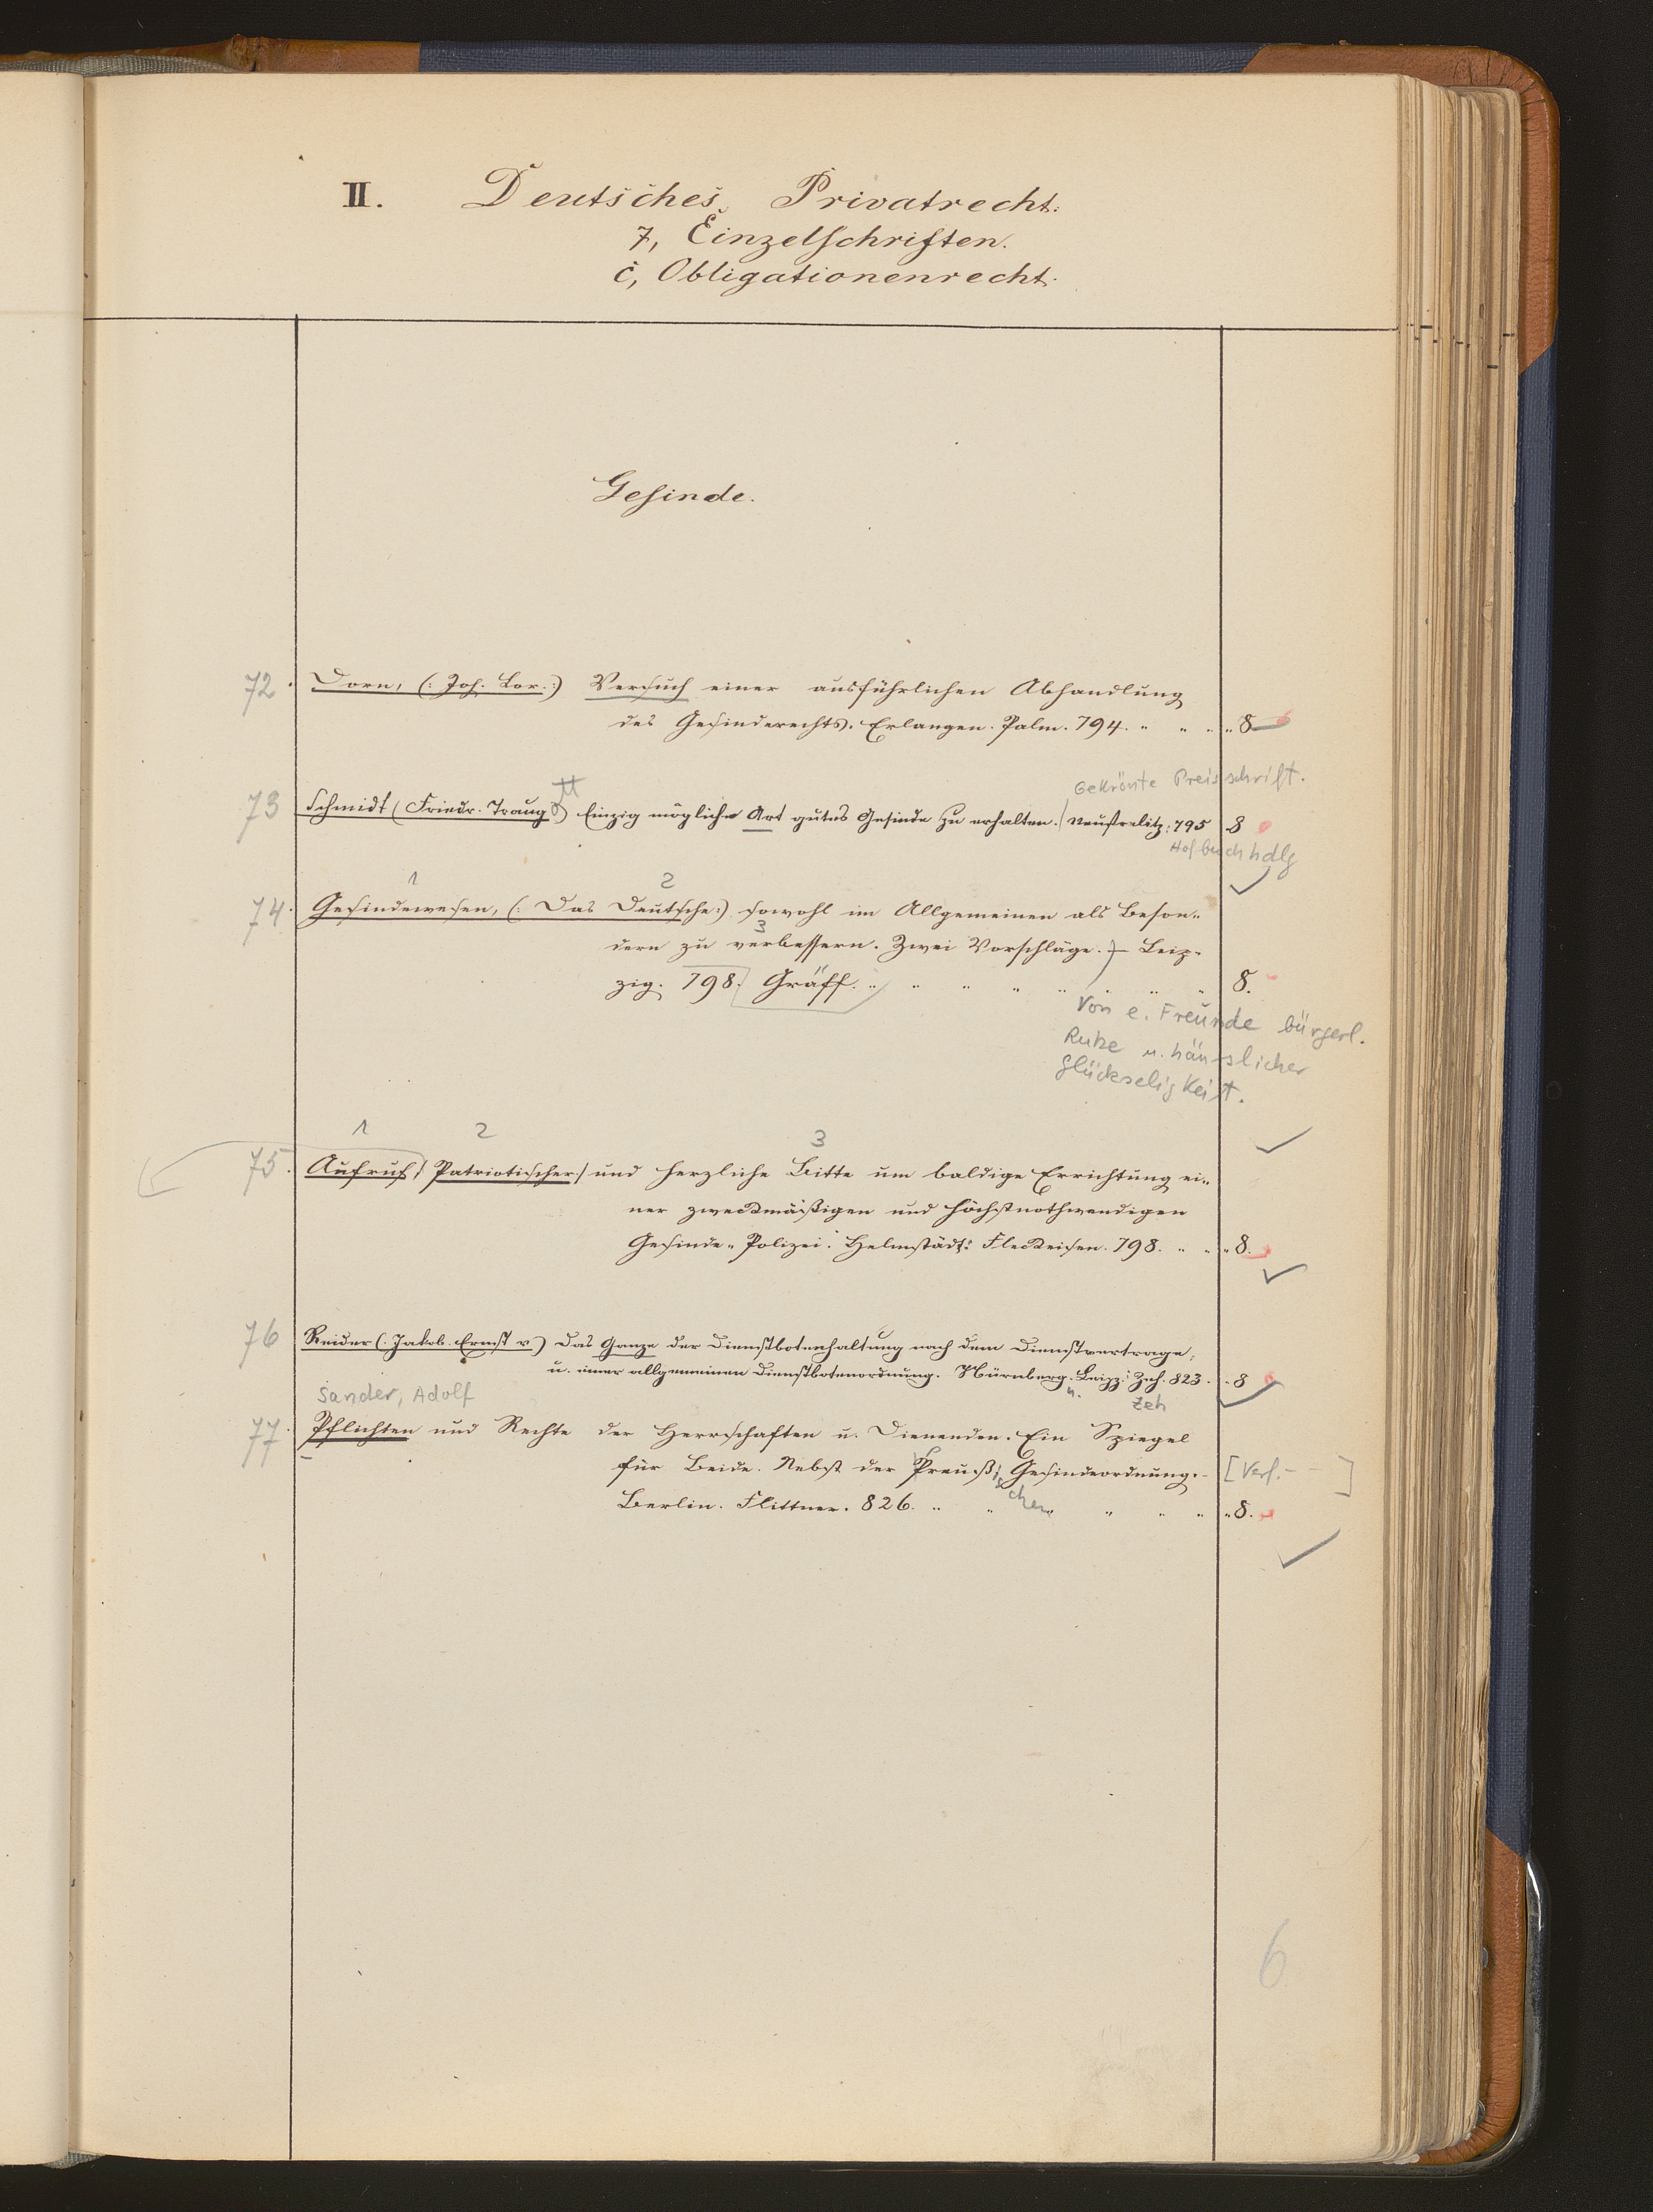 II. Deutsches Privatrecht.
7, Einzelschriften.
c, Obligationenrecht.
Gesinde.
72. Dorn, (: Joh. Lor. :) Versuch einer ausführlichen Abhandlung
des Gesinderechts. Erlangen. Palm. 794. " " " " 8
Gekrönte Preisschrift.
tt
73 Schmidt (Friedr. Traug.) Einzig mögliche Art gutes Gesinde zu erhalten. / Neustrelitz: 795 8
Hofbuchhdlg
1 2
74. Gesindewesen, (: Das Deutsche:) sowohl im Allgemeinen als Beson-
3
dern zu verbessern. Zwei Vorschläge. ) – Leip-
zig. 798. Gräff. " " " " " " " " 8.
Von e. Freunde bürgerl.
Ruhe u. häuslicher
Glückseligkeit.
1 2 3
75. Aufruf / Patriotischer / und herzliche Bitte um baldige Errichtung ei-
ner zweckmäßigen und höchstnothwendigen
Gesinde-Polizei. Helmstädt: Fleckeisen. 798. " " " 8.
76 Reider (: Jakob Ernst v.) Das Ganze der Dienstbotenhaltung nach dem Dienstvertrage,
u. einer allgemeinen Dienstbotenordnung. Nürnberg. Leipz: Zeh. 823. " 8
u. Zeh
Sander, Adolf
77. Pflichten und Rechte der Herrschaften u. Dienenden. Ein Spiegel
für Beide. Nebst der Preuß. Gesindeordnung. – [Verf. – – ]
schen
Berlin. Flittner. 826. " " " " " " " 8.
6